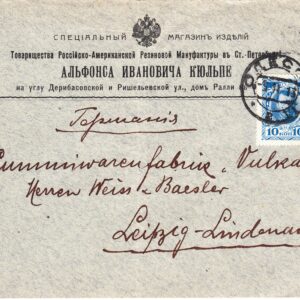 СПЕЦІАЛЬНЫЙ МАГАЗИН ИЗДѢЛІЙ
Товарищества Россійско-Американской Резиновой Мануфактуры въ Ст.-Петербургѣ
АЛЬФОНСА ИВАНОВИЧА КЮЛЬПЕ
на углу Дерибасовской и Ришельевской ул., домъ Ралли
ОДЕС
10 КОП 10
Германія
Gummiwarenfabrik „Vulka
Herren Weiss & Baesler
Leipzig-Lindenau